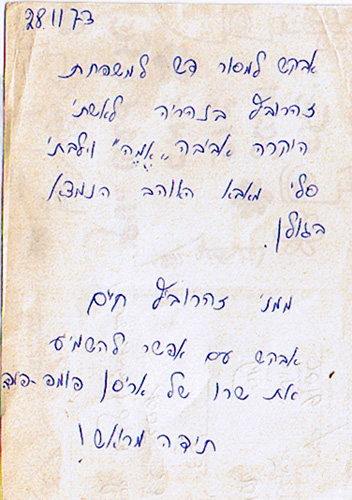 28.11.73
אבקש למסור דש למשפחת
בנהריה לאשתי
היקרה אביבה "אמה" ולבתי
סלי מאבא האוהב הנמצא
בגולן.
ממני חיים
אבקש עם אפשר להשמיע
את שרו של אריסן
תודה מראש!